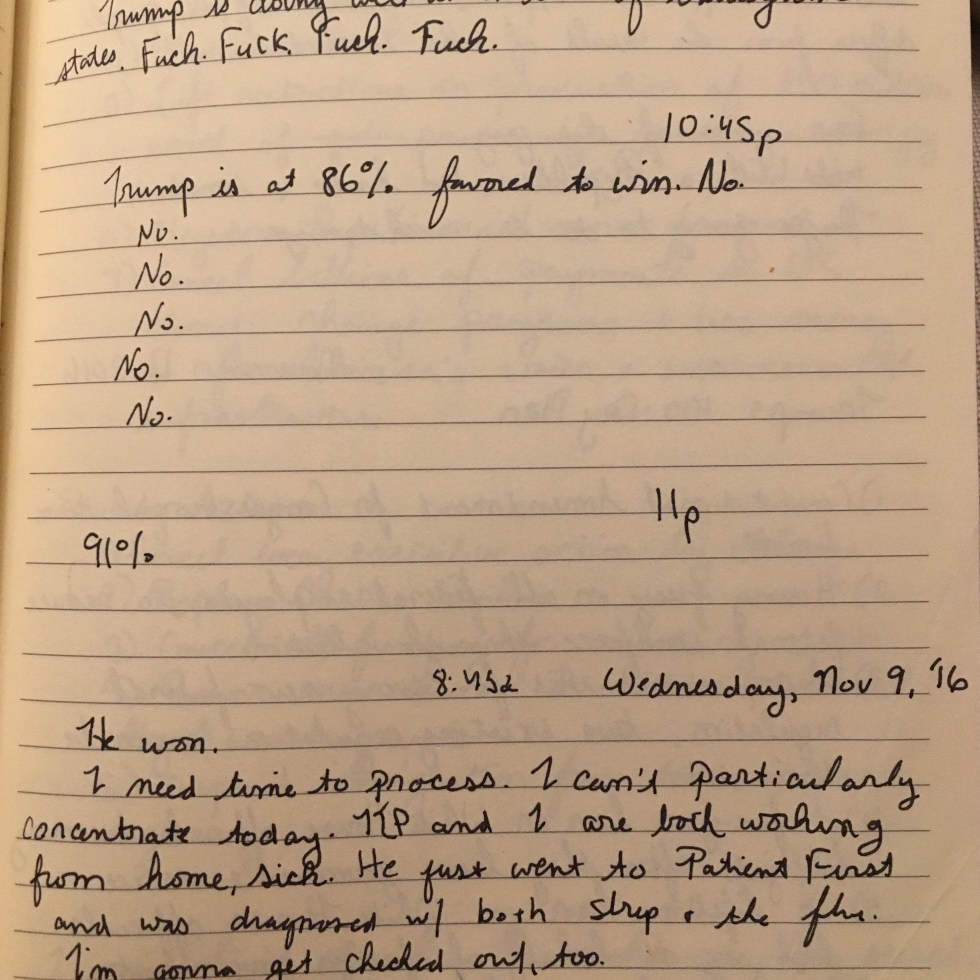 Trump is doing well in of
states. Fuck. Fuck. Fuck. Fuck.
10:45p
Trump is at 86% favored to win. No.
No.
No.
No.
No.
No.
11p
91%
8:45a Wednesday, Nov 9, '16
He won.
I need time to process. I can't particularly
concentrate today. KP and I are both working
from home, sick. He just went to Patient First
and was diagnosed w/ both strep & the flu.
I'm gonna get checked out, too.